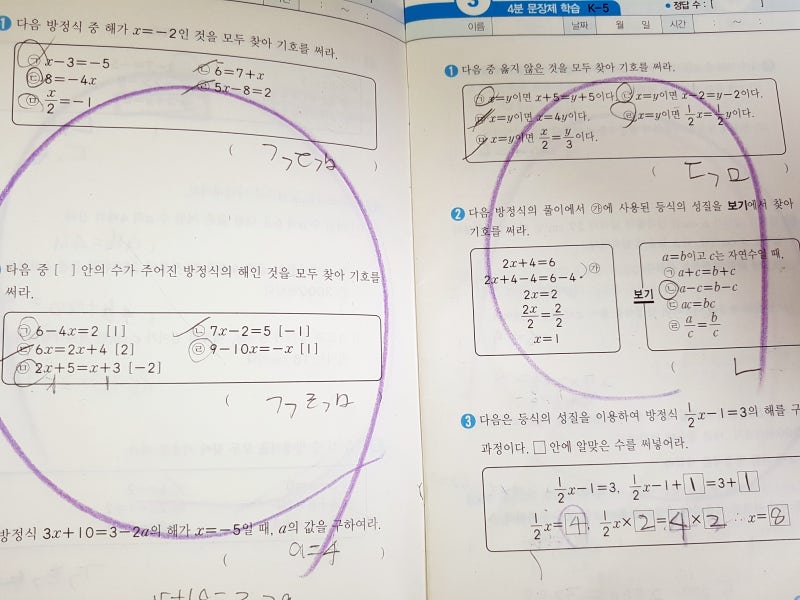 1 다음 방정식 중 해가 x=-2인 것을 모두 찾아 기호를 써라.
㉠ x-3=-5 ㉡ 6=7+x
㉢ 8=-4x ㉣ 5x-8=2
㉤ x/2=-1
( ㄱ, ㄷ, ㅁ )
다음 중 [ ] 안의 수가 주어진 방정식의 해인 것을 모두 찾아 기호를
써라.
㉠ 6-4x=2 [1] ㉡ 7x-2=5 [-1]
㉢ 6x=2x+4 [2] ㉣ 9-10x=-x [1]
㉤ 2x+5=x+3 [-2]
( ㄱ, ㄹ, ㅁ )
방정식 3x+10=3-2a의 해가 x=-5일 때, a의 값을 구하여라.
( a=4 )
4분 문장제 학습 K-5 • 정답 수 : [
이름 날짜 월 일 시간 : ~ :
1 다음 중 옳지 않은 것을 모두 찾아 기호를 써라.
㉠ x=y이면 x+5=y+5이다. ㉡ x=y이면 x-2=y-2이다.
㉢ x=y이면 x=4y이다. ㉣ x=y이면 1/2x=1/2y이다.
㉤ x=y이면 x/2=y/3이다.
( ㄷ, ㅁ )
2 다음 방정식의 풀이에서 ㉮에 사용된 등식의 성질을 보기에서 찾아
기호를 써라.
2x+4=6
2x+4-4=6-4 ㉮
2x=2
2x/2=2/2
x=1
보기
a=b이고 c는 자연수일 때,
㉠ a+c=b+c
㉡ a-c=b-c
㉢ ac=bc
㉣ a/c=b/c
( ㄴ
3 다음은 등식의 성질을 이용하여 방정식 1/2x-1=3의 해를 구
과정이다. □ 안에 알맞은 수를 써넣어라.
1/2x-1=3, 1/2x-1+1=3+1
1/2x=4, 1/2x×2=4×2 ∴ x=8